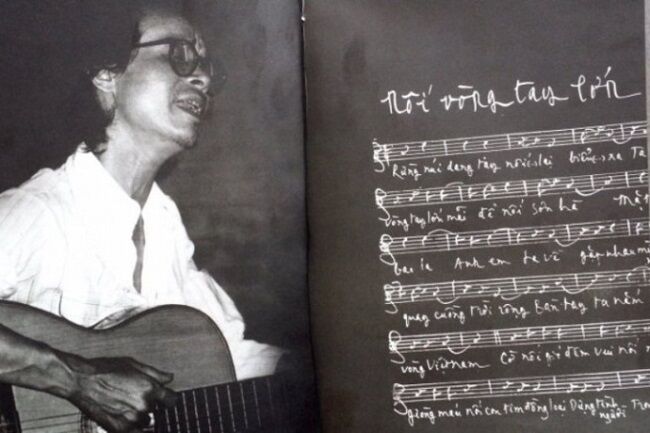 nối vòng tay lớn
Rừng núi dang tay nối lại biển xa Ta
vòng tay lớn mãi để nối sơn hà Mặt
bao la Anh em ta về gặp nhau
quay cuồng trời rộng Bàn tay ta nắm
vòng Việt nam Cờ nối gió đêm vui nối
giòng máu nối con tim đồng loại Dựng tình người Trong